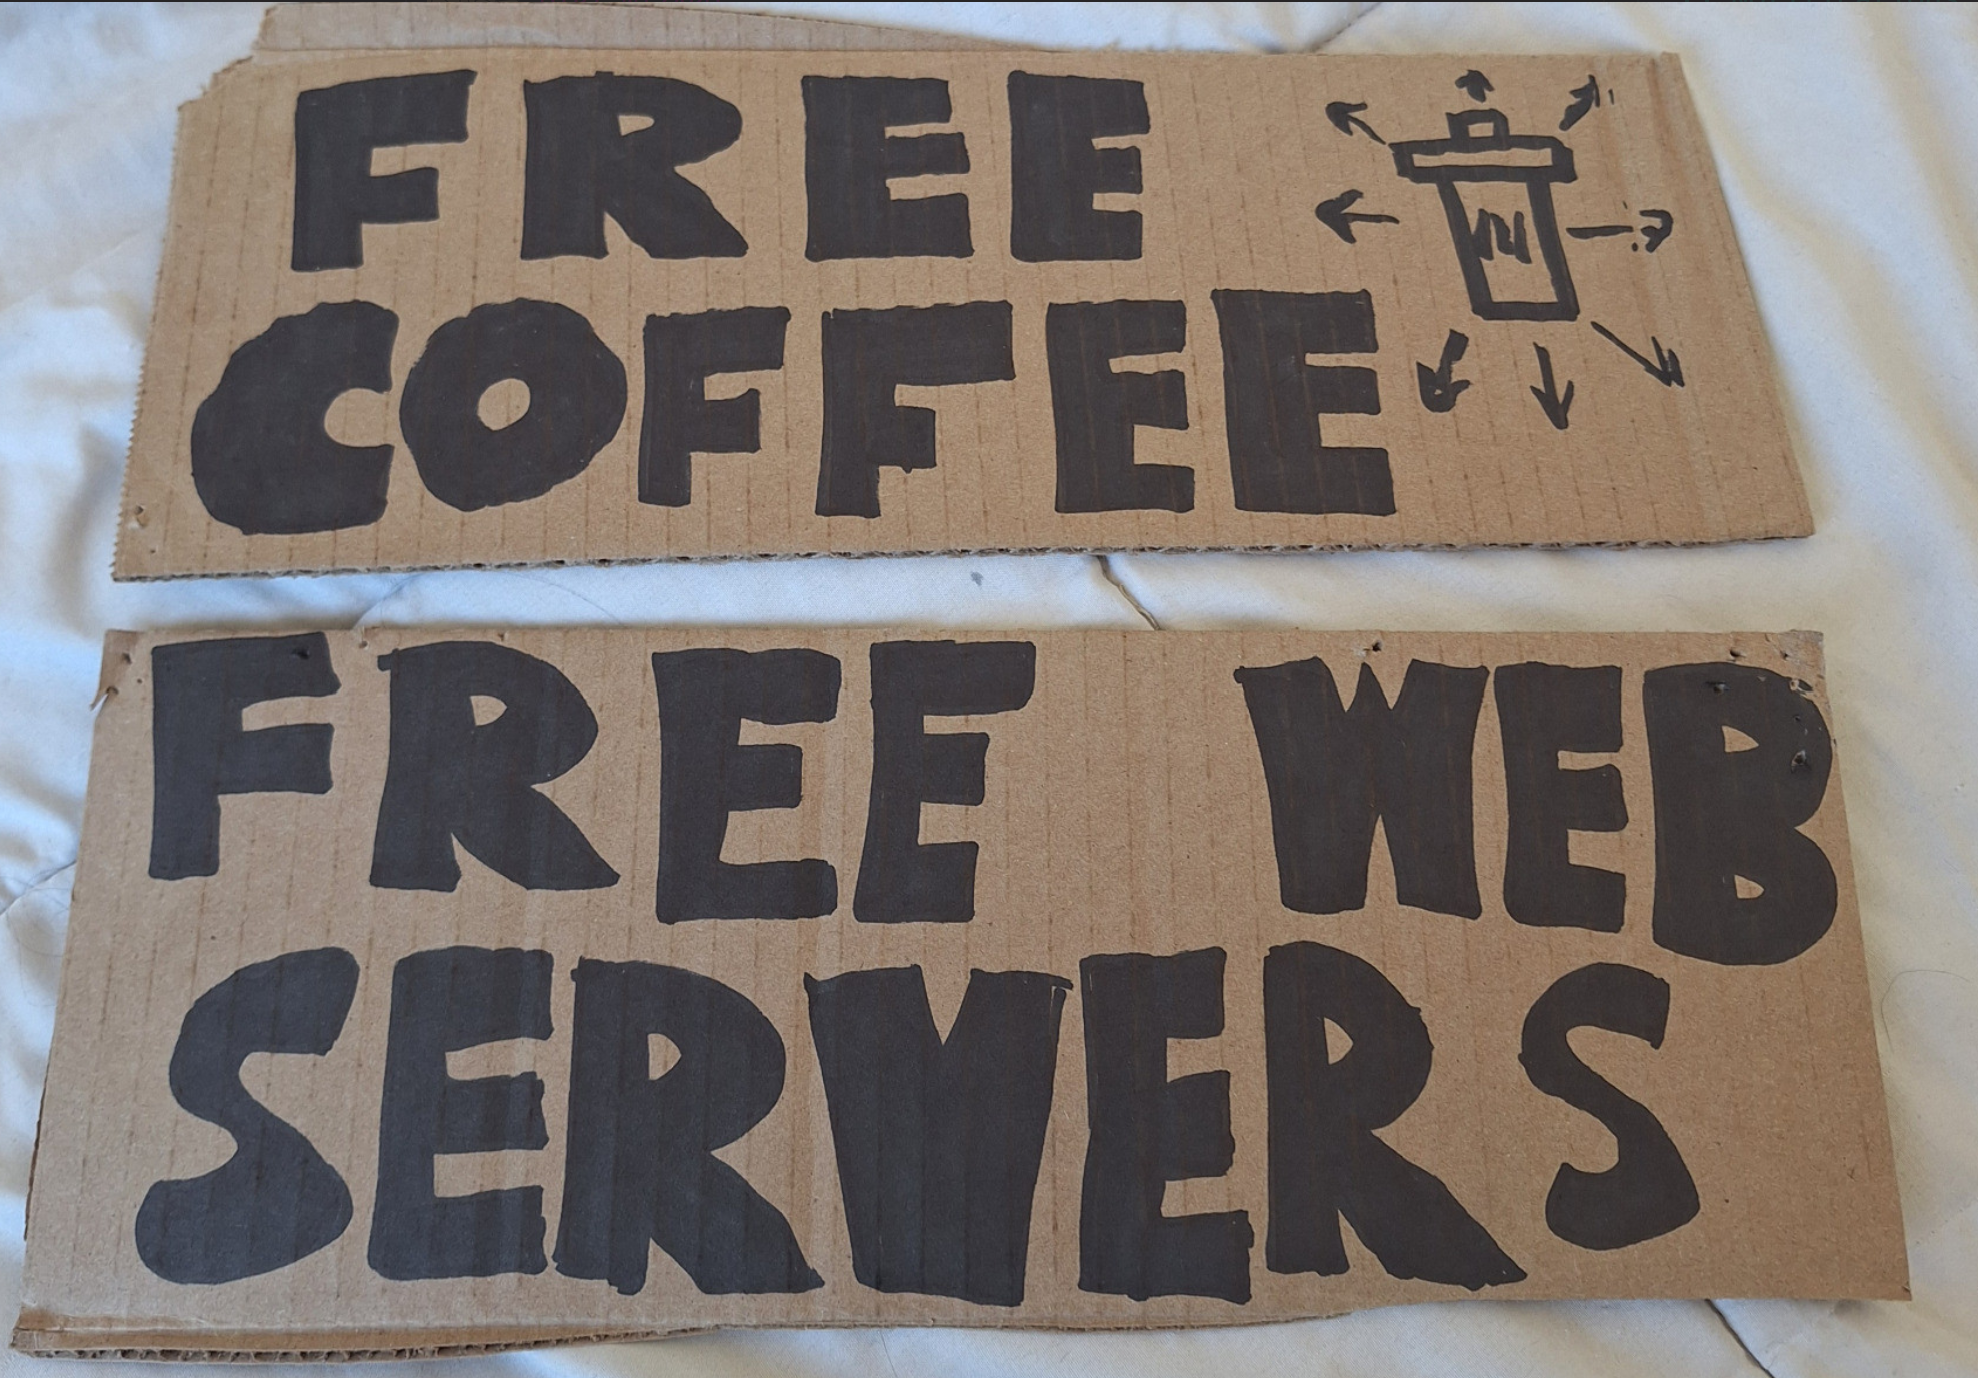 FREE
COFFEE
FREE WEB
SERVERS